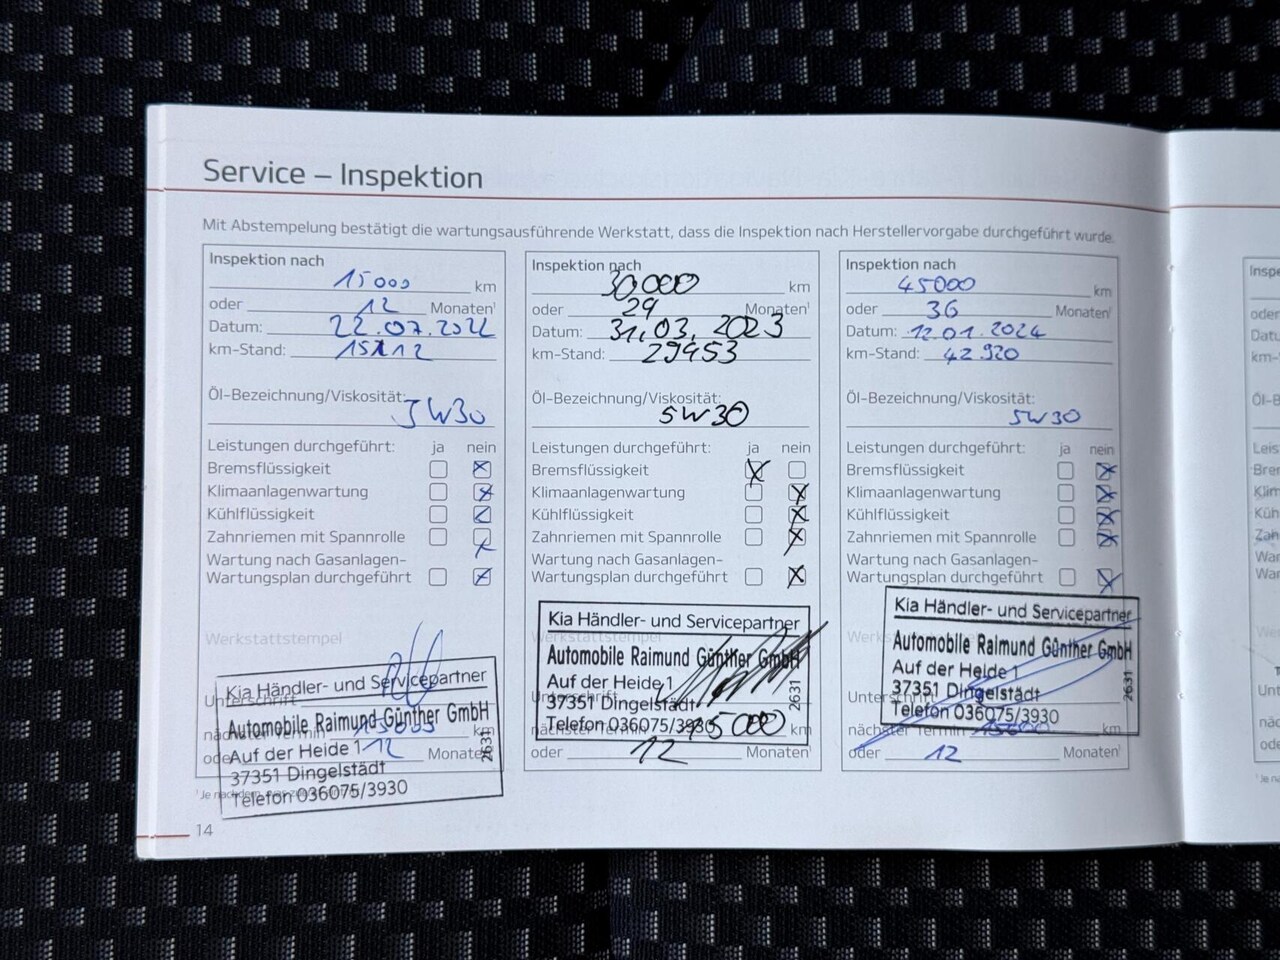 Service – Inspektion
Mit Abstempelung bestätigt die wartungsausführende Werkstatt, dass die Inspektion nach Herstellervorgabe durchgeführt wurde.
Inspektion nach
15000 km
oder 12 Monaten¹
Datum: 22.07.2022
km-Stand:
Öl-Bezeichnung/Viskosität:
5W30
Leistungen durchgeführt: ja nein
Bremsflüssigkeit
Klimaanlagenwartung
Kühlflüssigkeit
Zahnriemen mit Spannrolle
Wartung nach Gasanlagen-
Wartungsplan durchgeführt
Werkstattstempel
Kia Händler- und Servicepartner
Unterschrift
Automobile Raimund Günther GmbH
nächster Termin 15000 km
Auf der Heide 1
oder 12 Monaten
2631
37351 Dingelstädt
Telefon 036075/3930
Inspektion nach
30000 km
oder 29 Monaten¹
Datum: 31.03.2023
km-Stand: 29453
Öl-Bezeichnung/Viskosität:
5W30
Leistungen durchgeführt: ja nein
Bremsflüssigkeit
Klimaanlagenwartung
Kühlflüssigkeit
Zahnriemen mit Spannrolle
Wartung nach Gasanlagen-
Wartungsplan durchgeführt
Kia Händler- und Servicepartner
Werkstattstempel
Automobile Raimund Günther GmbH
Auf der Heide 1
Unterschrift
37351 Dingelstädt
2631
Telefon 036075/3930
nächster Termin 15000 km
oder 12 Monaten¹
Inspektion nach
45000 km
oder 36 Monaten¹
Datum: 12.01.2024
km-Stand: 42.920
Öl-Bezeichnung/Viskosität:
5W30
Leistungen durchgeführt: ja nein
Bremsflüssigkeit
Klimaanlagenwartung
Kühlflüssigkeit
Zahnriemen mit Spannrolle
Wartung nach Gasanlagen-
Wartungsplan durchgeführt
Kia Händler- und Servicepartner
Werkstattstempel
Automobile Raimund Günther GmbH
Auf der Heide 1
37351 Dingelstädt
Unterschrift
2631
Telefon 036075/3930
nächster Termin 15000 km
oder 12 Monaten¹
14